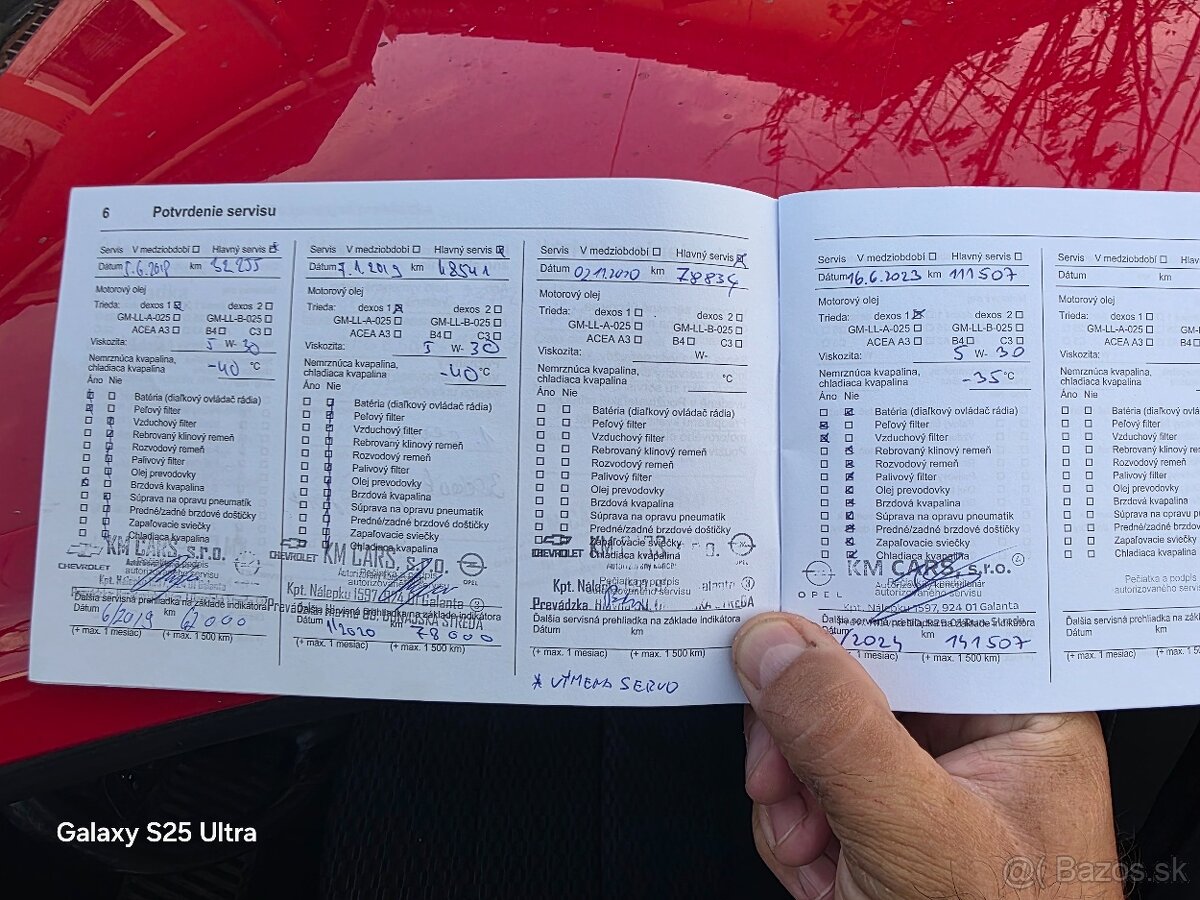 6 Potvrdenie servisu
Servis V medziobdobí Hlavný servis
Dátum 5.6.2018 km 32255
Motorový olej
Trieda: dexos 1 dexos 2
GM-LL-A-025 GM-LL-B-025
ACEA A3 B4 C3
Viskozita: 5 W- 30
Nemrznúca kvapalina,
chladiaca kvapalina -40 °C
Áno Nie
Batéria (diaľkový ovládač rádia)
Peľový filter
Vzduchový filter
Rebrovaný klinový remeň
Rozvodový remeň
Palivový filter
Olej prevodovky
Brzdová kvapalina
Súprava na opravu pneumatík
Predné/zadné brzdové doštičky
Zapaľovacie sviečky
Chladiaca kvapalina
CHEVROLET KM CARS, s.r.o.
autorizovaného servisu
Ďalšia servisná prehliadka na základe indikátora
Dátum 6/2019 km 62000
(+ max. 1 mesiac) (+ max. 1 500 km)
Servis V medziobdobí Hlavný servis
Dátum 7.1.2019 km 48541
Motorový olej
Trieda: dexos 1 dexos 2
GM-LL-A-025 GM-LL-B-025
ACEA A3 B4 C3
Viskozita: 5 W- 30
Nemrznúca kvapalina,
chladiaca kvapalina -40 °C
Áno Nie
Batéria (diaľkový ovládač rádia)
Peľový filter
Vzduchový filter
Rebrovaný klinový remeň
Rozvodový remeň
Palivový filter
Olej prevodovky
Brzdová kvapalina
Súprava na opravu pneumatík
Predné/zadné brzdové doštičky
Zapaľovacie sviečky
Chladiaca kvapalina
CHEVROLET KM CARS, s.r.o. OPEL
autorizovaného servisu
Kpt. Nálepku 1597, 924 01 Galanta 3
Ďalšia servisná prehliadka na základe indikátora
Dátum 1/2020 km 78000
(+ max. 1 mesiac) (+ max. 1 500 km)
Servis V medziobdobí Hlavný servis
Dátum 02.11.2020 km 78834
Motorový olej
Trieda: dexos 1 dexos 2
GM-LL-A-025 GM-LL-B-025
ACEA A3 B4 C3
Viskozita: W-
Nemrznúca kvapalina,
chladiaca kvapalina °C
Áno Nie
Batéria (diaľkový ovládač rádia)
Peľový filter
Vzduchový filter
Rebrovaný klinový remeň
Rozvodový remeň
Palivový filter
Olej prevodovky
Brzdová kvapalina
Súprava na opravu pneumatík
Predné/zadné brzdové doštičky
Zapaľovacie sviečky
Chladiaca kvapalina
CHEVROLET KM OPEL
Pečiatka a podpis
autorizovaného servisu
Kpt. Nálepku
Prevádzka
Ďalšia servisná prehliadka na základe indikátora
Dátum km
(+ max. 1 mesiac) (+ max. 1 500 km)
* VÝMENA SERVO
Servis V medziobdobí Hlavný servis
Dátum 16.6.2023 km 111507
Motorový olej
Trieda: dexos 1 dexos 2
GM-LL-A-025 GM-LL-B-025
ACEA A3 B4 C3
Viskozita: 5 W- 30
Nemrznúca kvapalina,
chladiaca kvapalina -35 °C
Áno Nie
Batéria (diaľkový ovládač rádia)
Peľový filter
Vzduchový filter
Rebrovaný klinový remeň
Rozvodový remeň
Palivový filter
Olej prevodovky
Brzdová kvapalina
Súprava na opravu pneumatík
Predné/zadné brzdové doštičky
Zapaľovacie sviečky
Chladiaca kvapalina
OPEL KM CARS, s.r.o.
autorizovaného servisu
Kpt. Nálepku 1597, 924 01 Galanta
Ďalšia servisná prehliadka na základe indikátora
Dátum /2024 km 141507
mesiac) (+ max. 1 500 km)
Servis V medziobdobí
Dátum km
Motorový olej
Trieda: dexos 1
GM-LL-A-025
ACEA A3 B4
Viskozita: W-
Nemrznúca kvapalina,
chladiaca kvapalina
Áno Nie
Batéria (diaľkový ovládač
Peľový filter
Vzduchový filter
Rebrovaný klinový
Rozvodový remeň
Palivový filter
Olej prevodovky
Brzdová kvapalina
Súprava na opravu
Predné/zadné brzdové
Zapaľovacie sviečky
Chladiaca kvapalina
Pečiatka a podpis
autorizovaného servisu
Ďalšia servisná prehliadka na základe
Dátum km
(+ max. 1 mesiac) (+ max. 1 5
Galaxy S25 Ultra
Bazos.sk